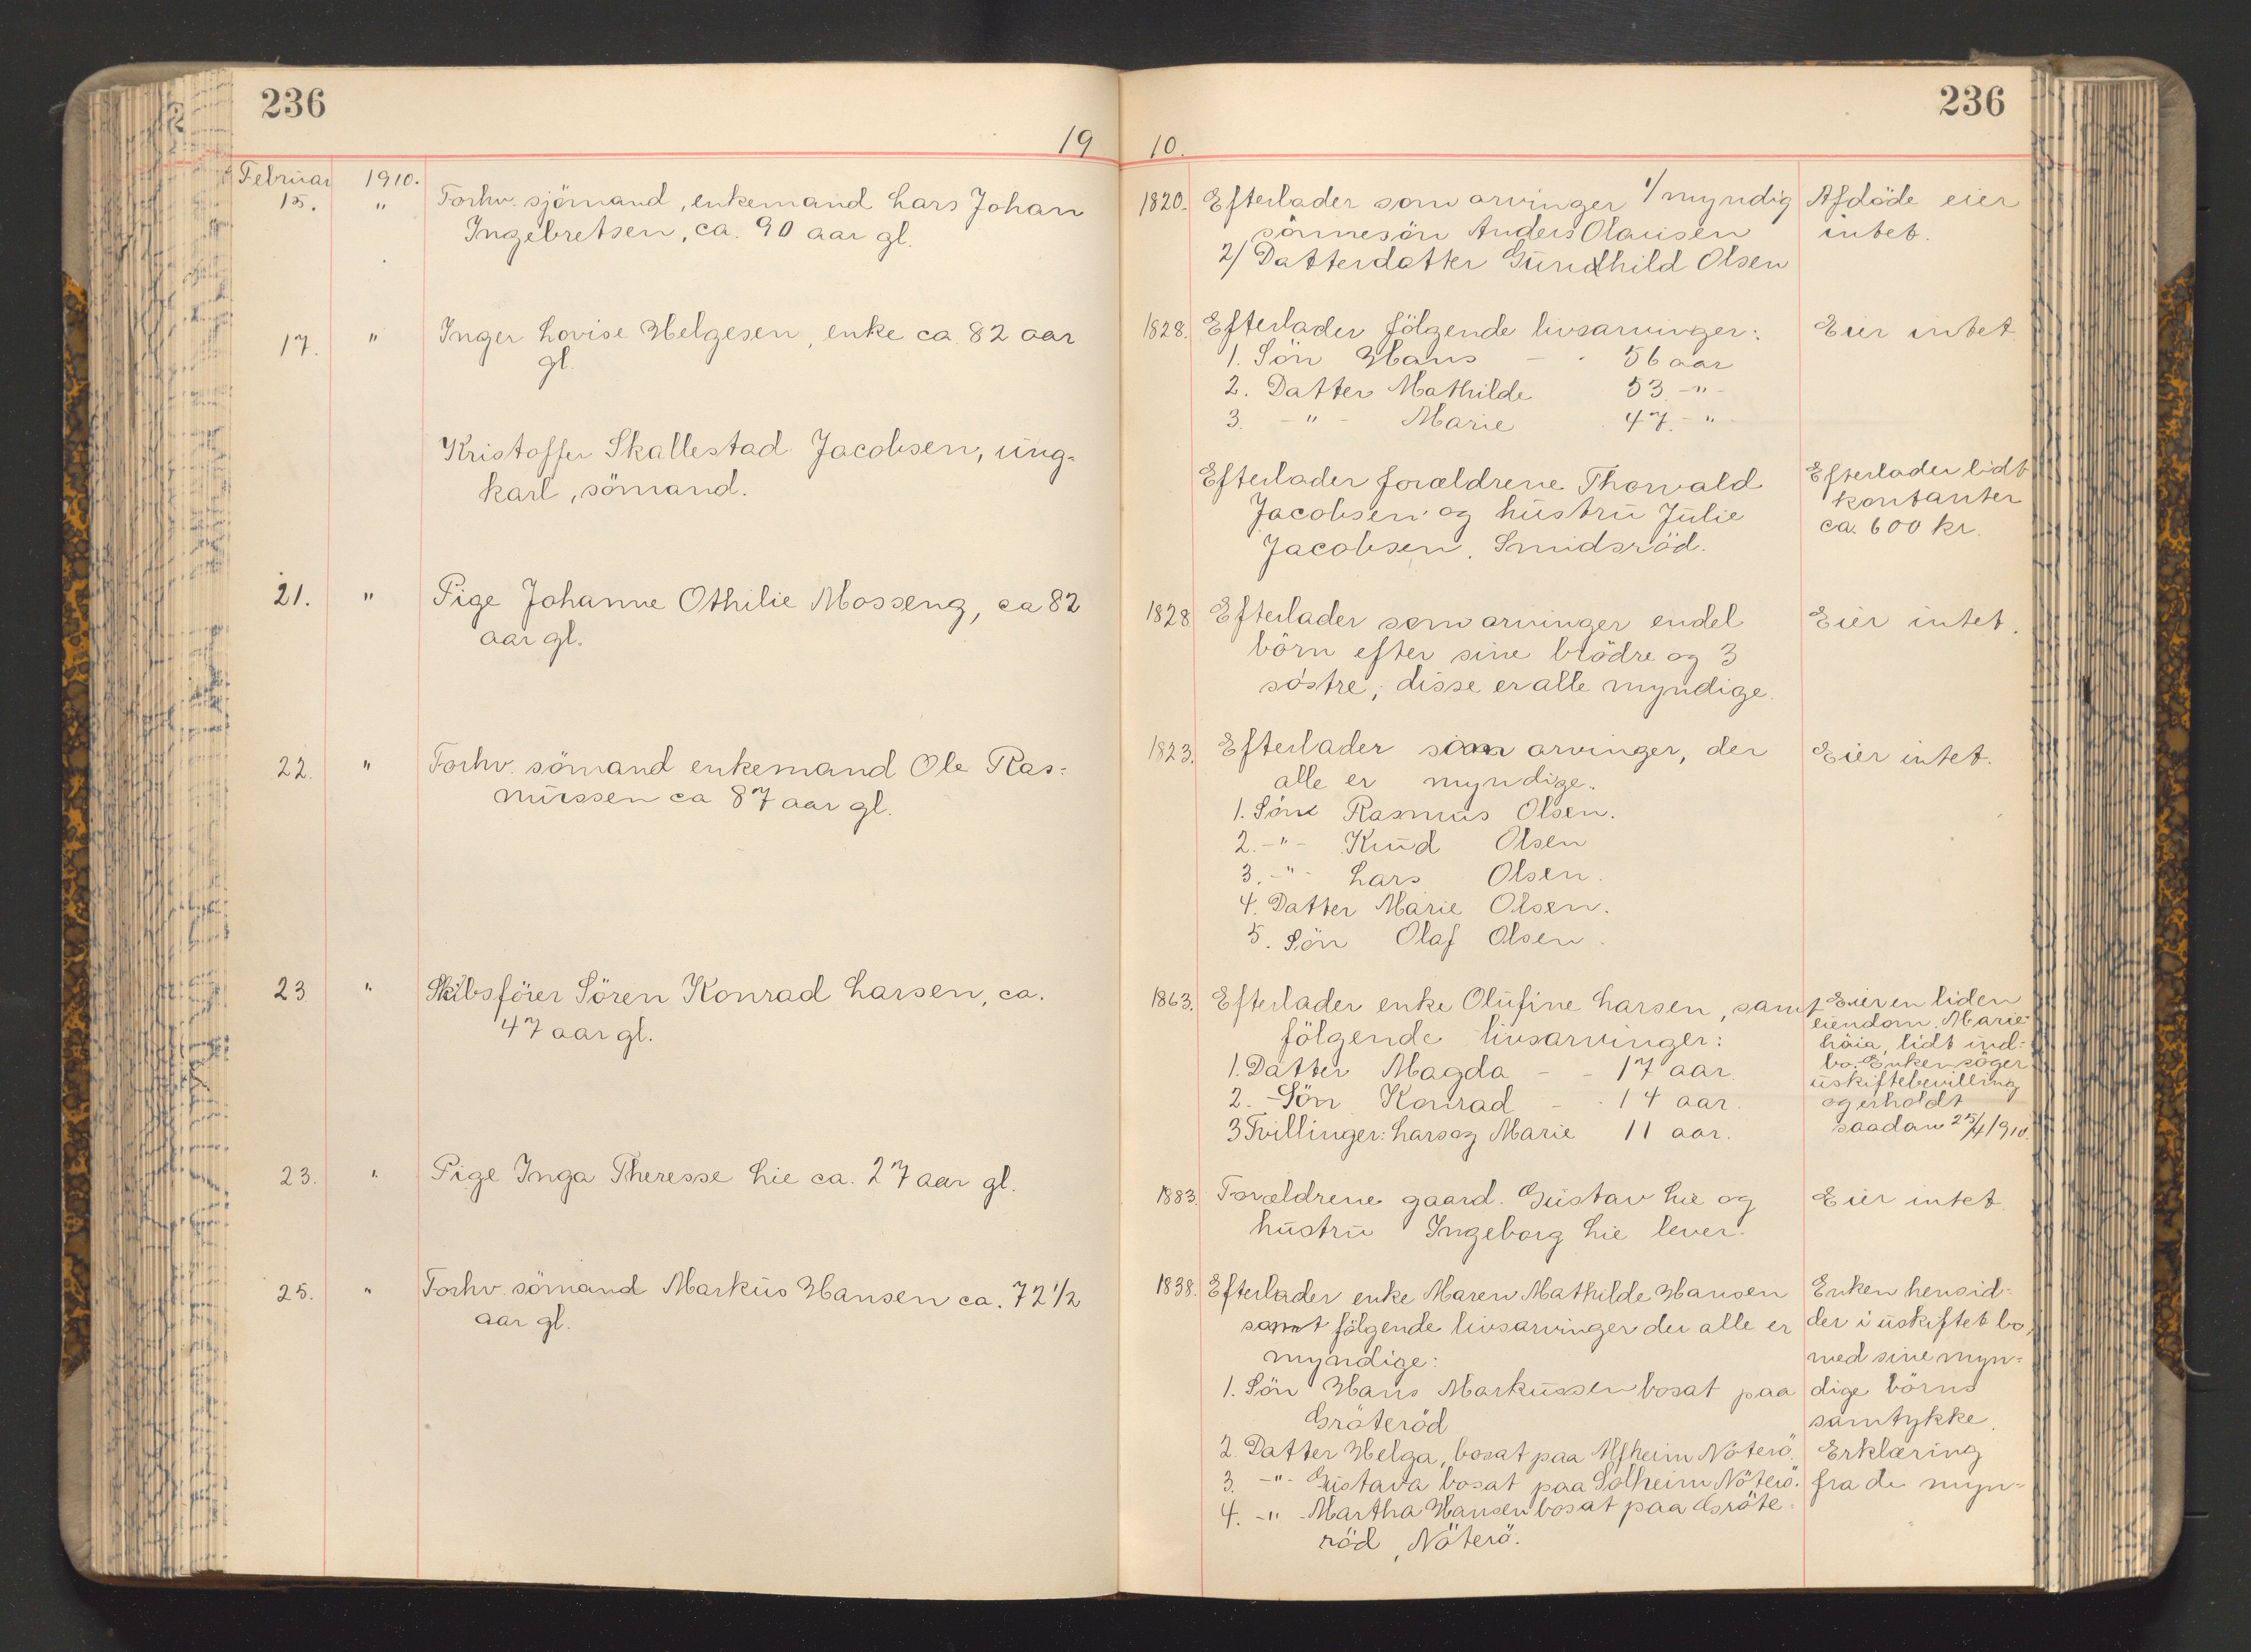 236
19
Februar 1910.
15. " Forhv. sjömand, enkemand Lars Johan
Ingebretsen, ca. 90 aar gl.
17. " Inger Lovise Helgesen, enke ca. 82 aar
gl.
Kristoffer Skallestad Jacobsen, ung-
karl, sömand.
21. " Pige Johanne Othilie Mosseng, ca 82
aar gl.
22. " Forhv. sömand enkemand Ole Ras-
mussen ca 87 aar gl.
23 " Skibsförer Sören Konrad Larsen, ca.
47 aar gl.
23. " Pige Inga Theresse Lie ca. 27 aar gl.
25. " Forhv. sömand Markus Hansen ca. 72 1/2
aar gl.
236
10.
1820. Efterlader som arvinger 1/ myndig
sönnesön Anders Olausen
2/ Datterdatter Gundhild Olsen
Afdöde eier
intet.
1828. Efterlader fölgende livsarvinger:
1. Sön Hans - - 56 aar
2. Datter Mathilde 53 -"-
3. -"- Marie 47 -"-
Eier intet
Efterlader forældrene Thorvald
Jacobsen og hustru Julie
Jacobsen. Smidsröd.
Efterlader lidt
kontanter
ca. 600 kr.
1828 Efterlader som arvinger endel
börn efter sine brödre og 3
söstre, disse er alle myndige.
Eier intet.
1823. Efterlader som arvinger, der
alle er myndige.
1. Sön Rasmus Olsen.
2. -"- Knud Olsen
3. -"- Lars Olsen.
4. Datter Marie Olsen.
5. Sön Olaf Olsen.
Eier intet.
1863. Efterlader enke Olufine Larsen, samt
fölgende livsarvinger:
1. Datter Magda - - 17 aar.
2. - Sön Konrad - - 14 aar.
3 Tvillinger: Lars og Marie 11 aar.
Eier en liden
eiendom Marie-
höia, lidt ind-
bo. Enken söger
uskiftebevilling
og erholdt
saadan 25/4 1910.
1883. Forældrene gaard. Gustav Lie og
hustru Ingeborg Lie lever.
Eier intet.
1838. Efterlader enke Maren Mathilde Hansen
samt fölgende livsarvinger der alle er
myndige:
1. Sön Hans Markussen bosat paa
Gröteröd
2. Datter Helga, bosat paa Alfheim Nöterö.
3. -"- Gustava bosat paa Solheim Nöterö.
4. -"- Martha Hansen bosat paa Gröte-
röd, Nöterö.
Enken hensid-
der i uskiftet bo,
med sine myn-
dige börns
samtykke.
Erklæring
fra de myn-